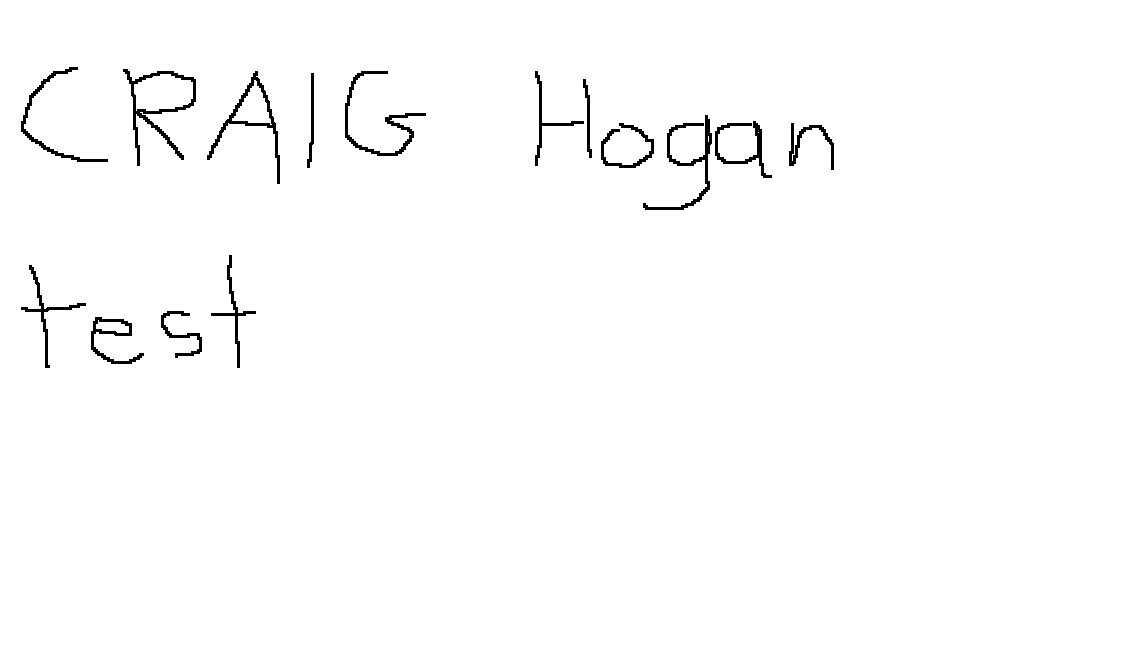 CRAIG Hogan
test